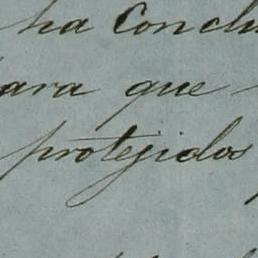 ha Conclu
para que
protejidos